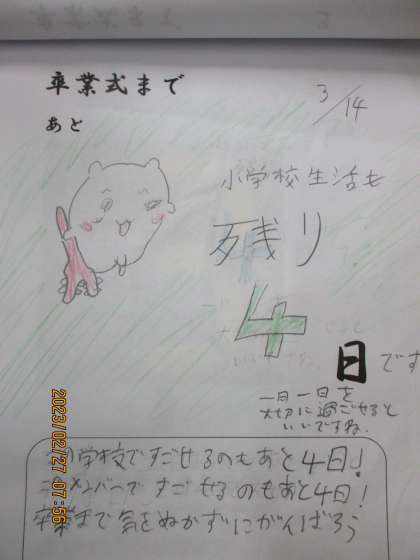 卒業式まで
あと
3/14
小学校生活も
残り
4
日です
一日一日を
大切に過ごせると
いいですね.
小学校ですごせるのもあと4日!
このメンバーですごせるのもあと4日!
卒業まで気をぬかずにがんばろう
2023/02/27 07:56